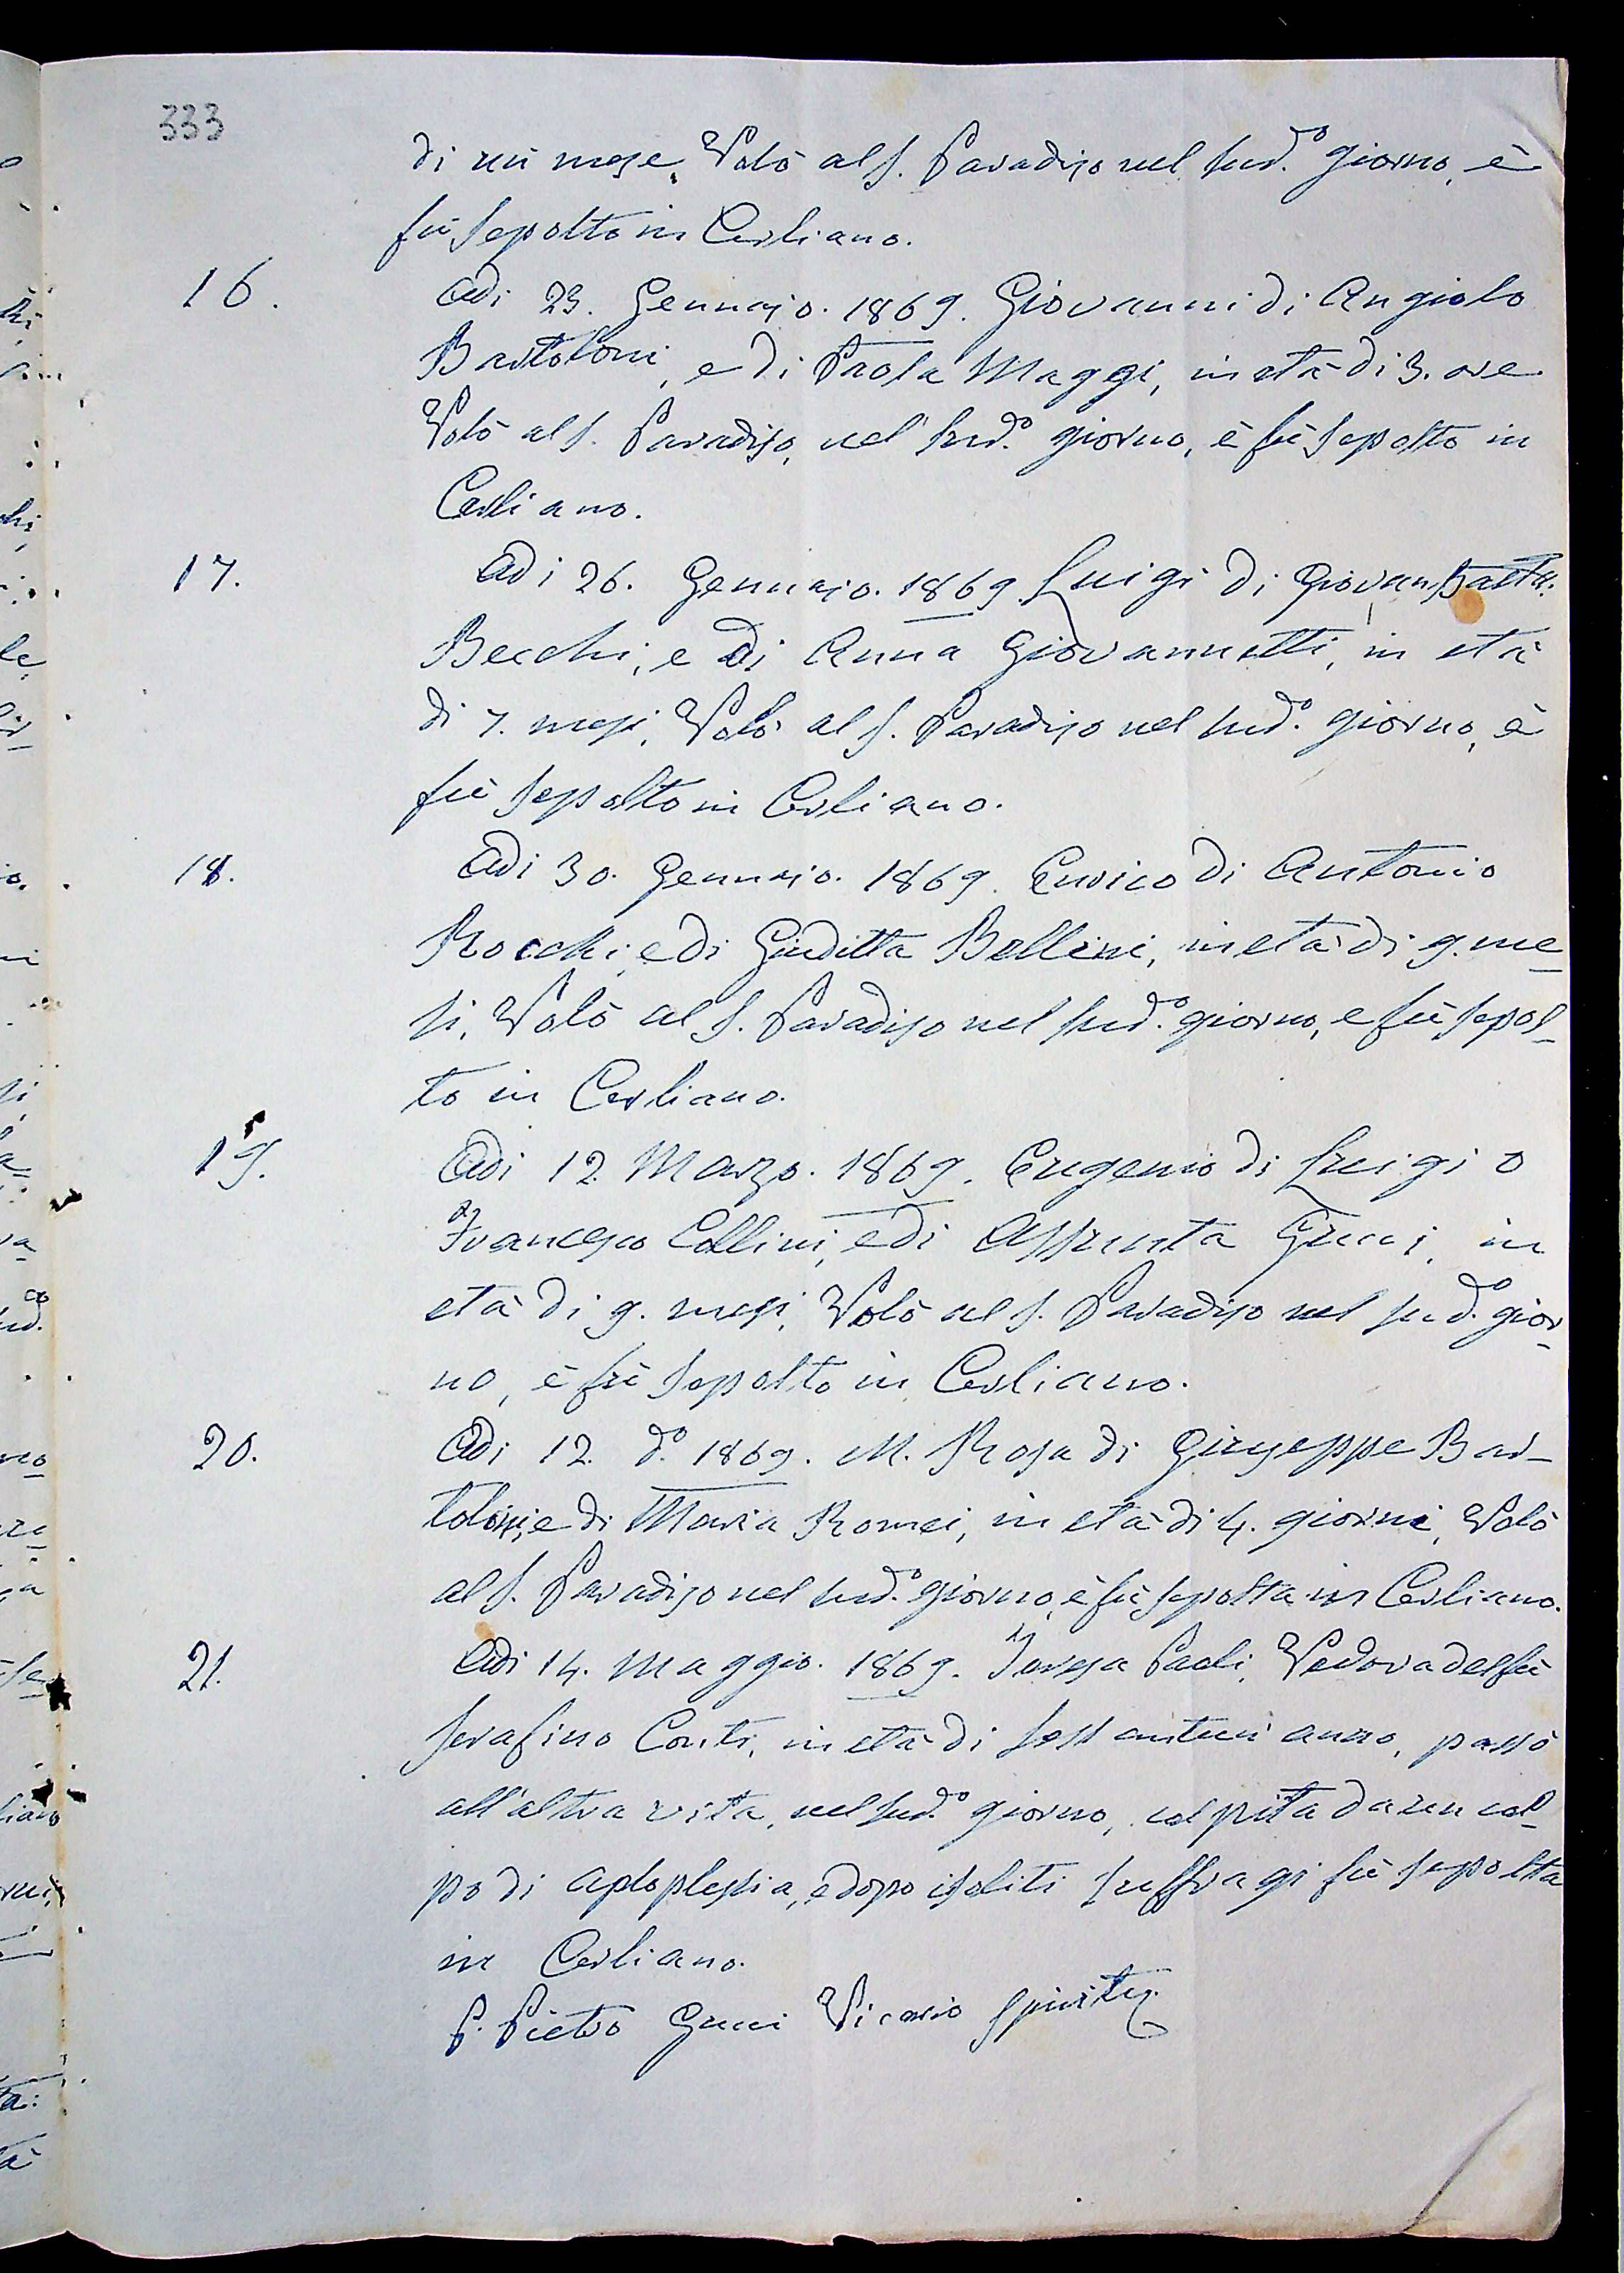 333
di un mese, Volò al S. Paradiso nel sud.º giorno, è
fù sepolto in Cerliano.
16. Adi 23. Gennajo. 1869. Giovanni di Angiolo
Bartolomi, e di Paola Maggi, in età di 3. ore
Volò al S. Paradiso, nel sud.º giorno, è fù sepolto in
Cerliano.
17. Adi 26. Gennajo. 1869 Luigi di Giovan Batta:
Becchi, e di Anna Giovannetti, in età
di 7. mesi, Volò al S. Paradiso nel sud.º giorno, è
fù sepolto in Cerliano.
18. Adi 30. Gennajo. 1869. Enrico di Antonio
Rocchi, e di Giuditta Bellini, in età di 9. me
si, Volò al S. Paradiso nel sud.º giorno, e fù sepol-
to in Cerliano.
19. Adi 12. Marzo. 1869. Eugenio di Luigi o
Francesco Collini, e di Assunta Gucci, in
età di 9. mesi, Volò al S. Paradiso nel sud.º gior
no, è fù sepolto in Cerliano.
20. Adi 12. d.º 1869. M. Rosa di Giuseppe Bar-
tolini, e di Maria Romei, in età di 4. giorni, Volò
al S. Paradiso nel sud.º giorno, è fù sepolta in Cerliano.
21. Adi 14. Maggio. 1869. Teresa Paoli, Vedova del fù
Serafino Conti, in età di sessantun anno, passò
all'altra vita, nel sud.º giorno, colpita da un col-
po di apoplessia, e dopo i soliti suffragi fù sepolta
in Cerliano.
P. Pietro Gucci Vicario Spirit.